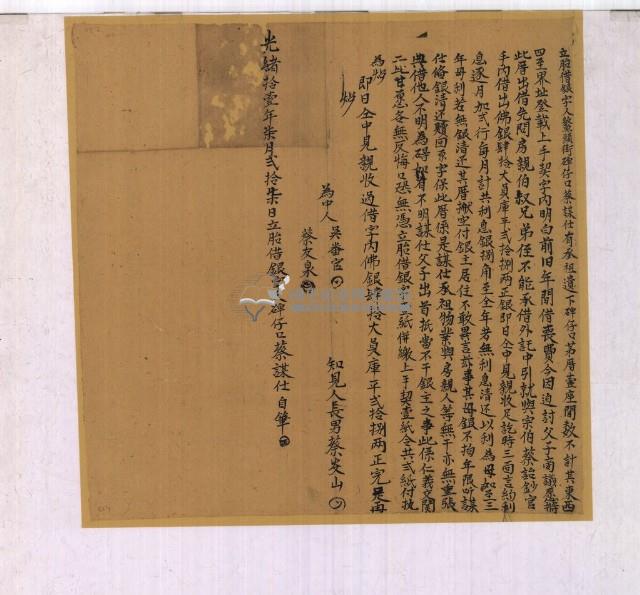 立胎借銀字人鰲頭街碑仔口蔡謀仕有承祖遺下碑仔口茅厝壹座間数不計其東西
四至界址登載上手契字內明白前旧年間借喪費今因迫討父子商議愿將
此厝出借先問房親伯叔兄弟侄不能承借外託中引就與宗伯蔡詒鈔官
手內借出佛銀肆拾大員庫平弍拾捌兩正銀即日仝中見親收足訖時三面言約利
息逐月加弍行每月計共利息銀捌角至全年若無利息清还以利為母如至三
年母利若無銀清还其厝搬空付銀主居住不敢異言訟事其母銀不拘年限听謀
仕俻銀清还贖回原字保此厝係是謀仕承祖物業與房親人等無干亦無重張
典借他人不明為碍如有不明謀仕父子出首抵當不干銀主之事此係仁義交關
二比甘愿各無反悔口恐無憑立胎借銀字壹紙併繳上手契壹紙合共弍紙付执
為炤
即日仝中見親收過借字內佛銀肆拾大員庫平弍拾捌兩正完足再
炤
為中人吳番官
蔡友泉
知見人長男蔡炎山
光緒拾壹年柒月弍拾柒日立胎借銀字人碑仔口蔡謀仕自筆